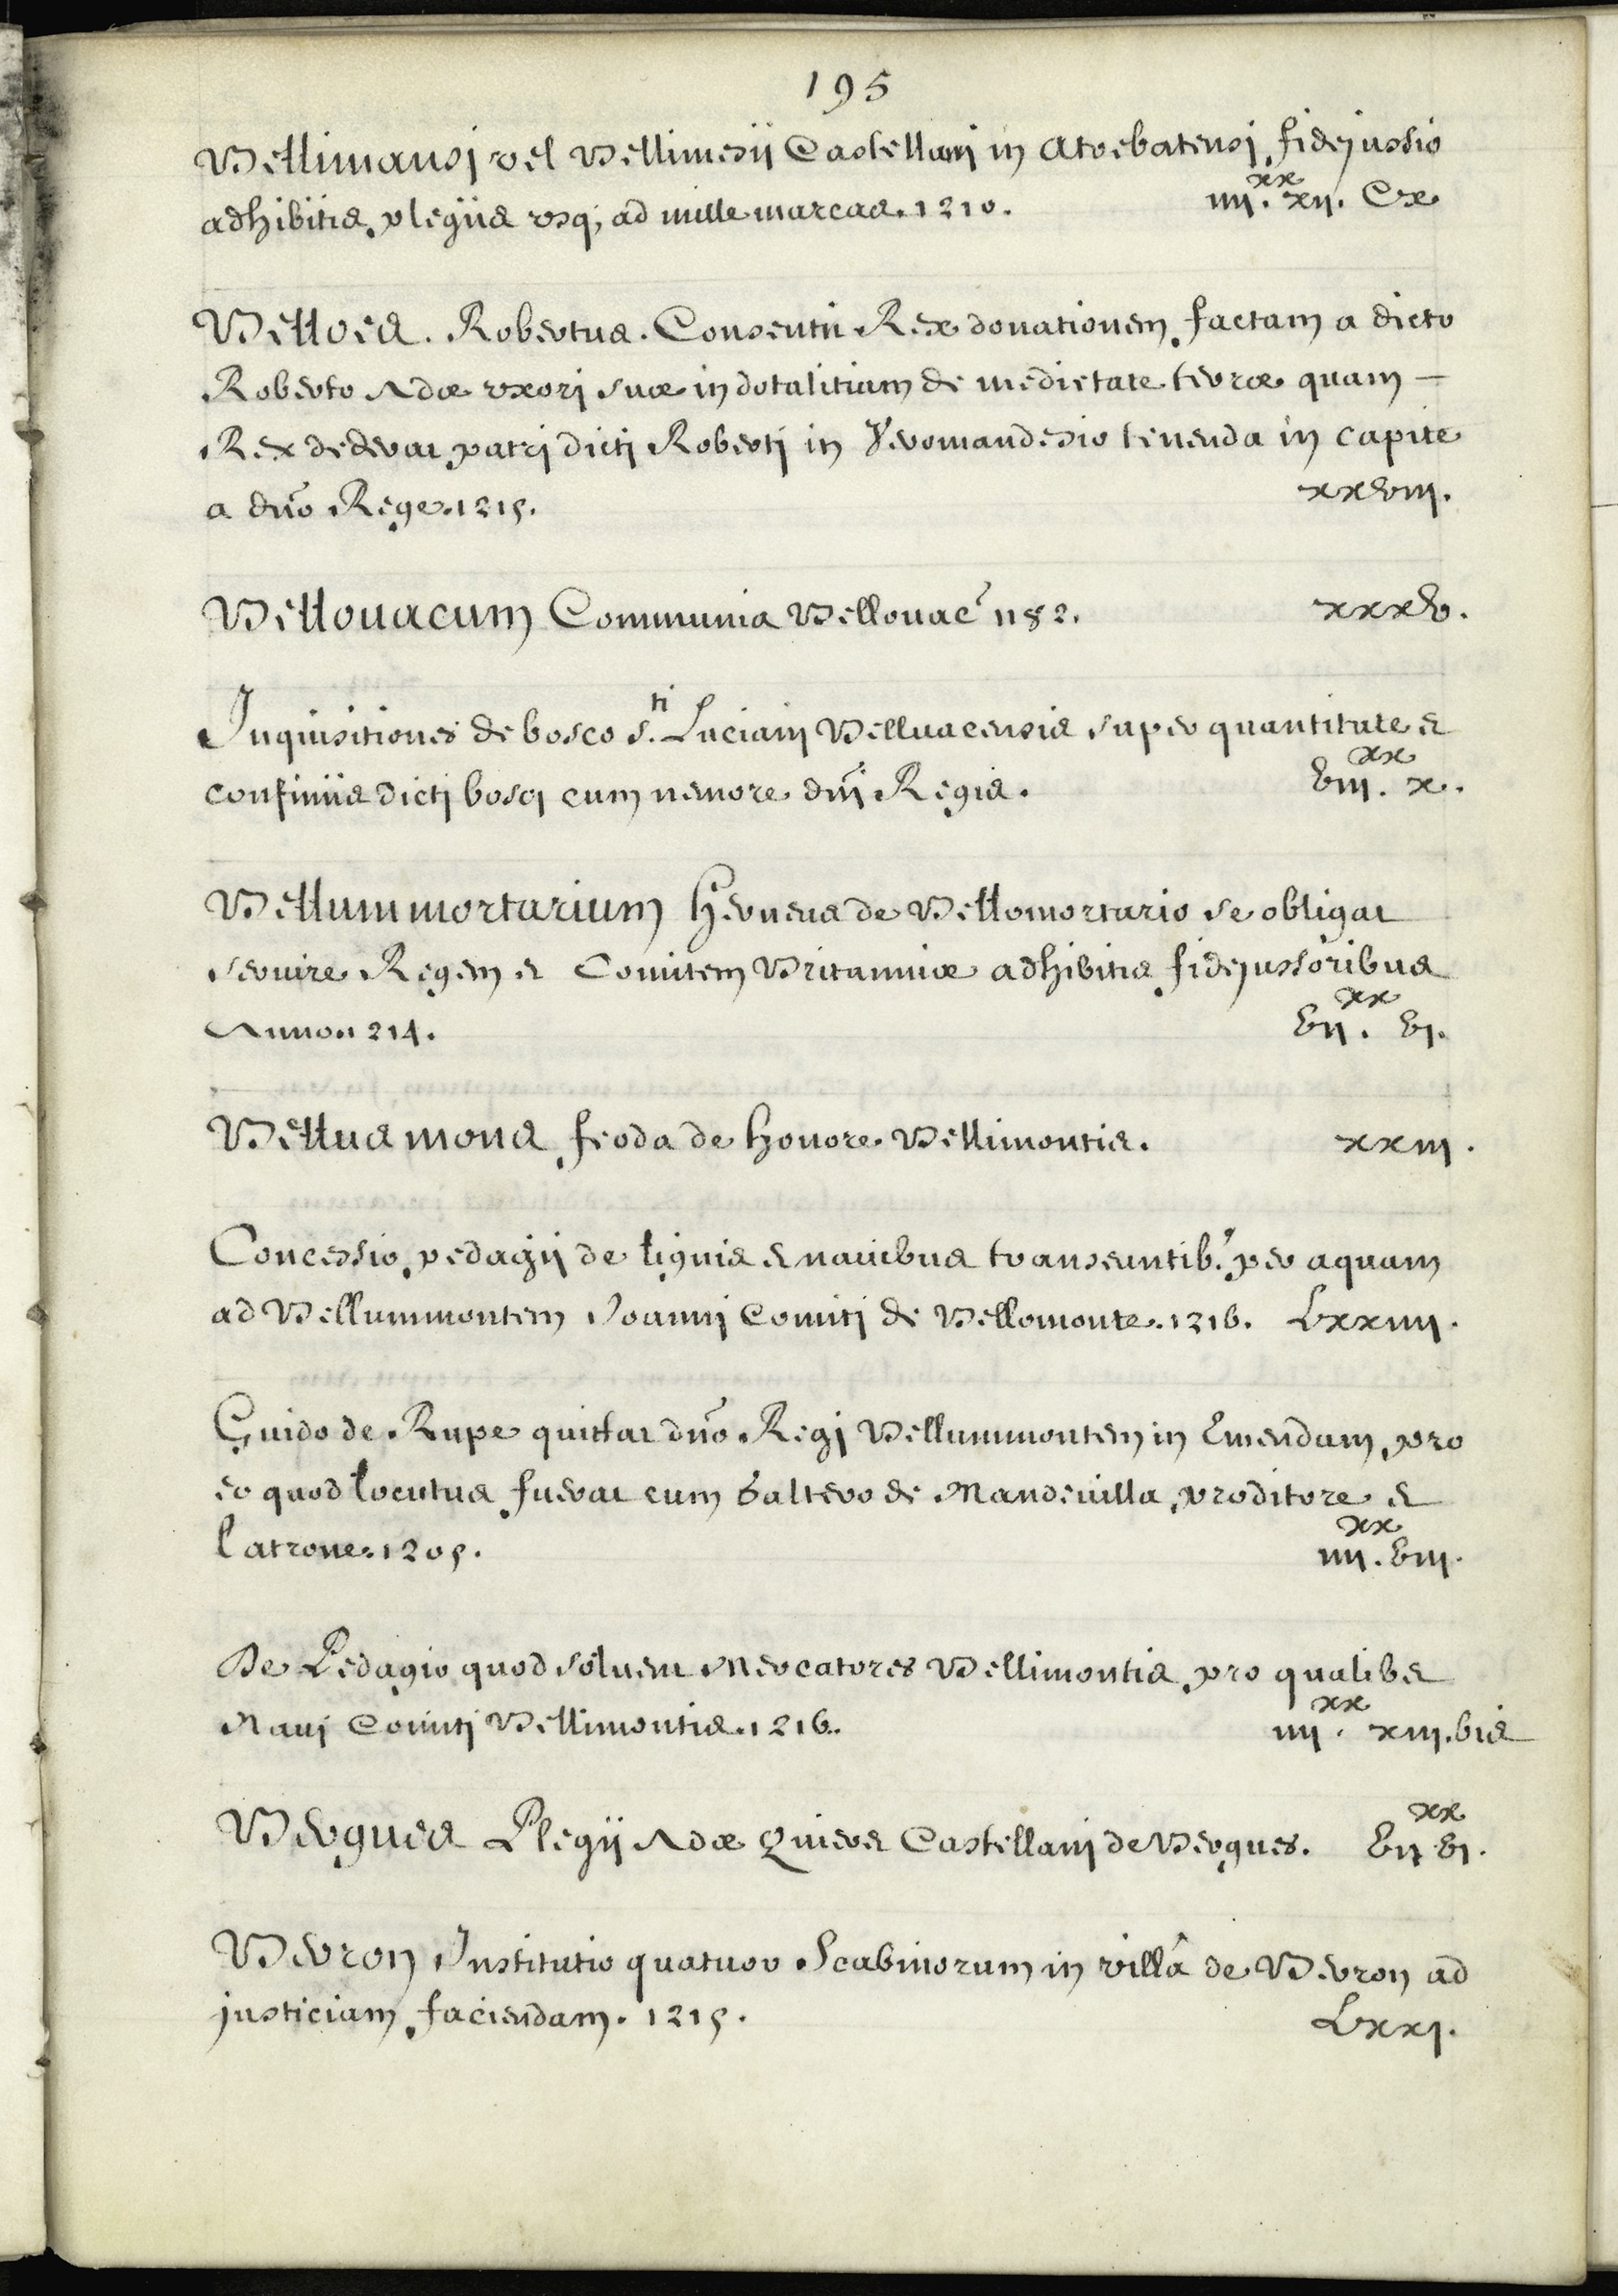 195
Bellimansi vel Bellimesii Castellani in Atrebatensi, fidejussio
adhibitis plegiis usq; ad mille marcas. 1210. iiii.^xx xii. Cx
Belloes. Robertus. Consentit Rex donationem factam a dicto
Roberto Adæ uxori suæ in dotalitium de medietate terræ quam —
Rex dederat patri dicti Roberti in Veromandesio tenenda in capite
a dño Rege. 1215. xxviii.
Bellouacum Communia Bellouac̃ 1182. xxxv.
Inquisitiones de bosco s.^ti Luciani Belluacensis super quantitate et
confiniis dicti bosci cum nemore dñi Regis. viii.^xx x.
Bellummortarium Herueus de Bellomortario se obligat
seruire Regem et Comitem Britanniæ adhibitis fidejussoribus
Anno. 1214. vii.^xx vi.
Bellus mons feoda de honore Bellimontis. xxiii.
Concessio pedagii de lignis et nauibus transeuntib.' per aquam
ad Bellummontem Joanni Comiti de Bellomonte. 1216. Lxxiiii.
Guido de Rupe quittat dño Regi Bellummontem in Emendam, pro
eo quod locutus fuerat cum Galtero de Mandeuilla, proditore et
latrone. 1205. iiii.^xx viii.
De Pedagio quod soluent Mercatores Bellimontis, pro qualibet
Naui Comiti Bellimontis. 1216. iiii.^xx xiii. bis
Bergues Plegii Adæ Quieret Castellani de Bergues. vii^xx vi.
Berron Institutio quatuor Scabinorum in villâ de Berron ad
justiciam faciendam. 1215. Lxxi.